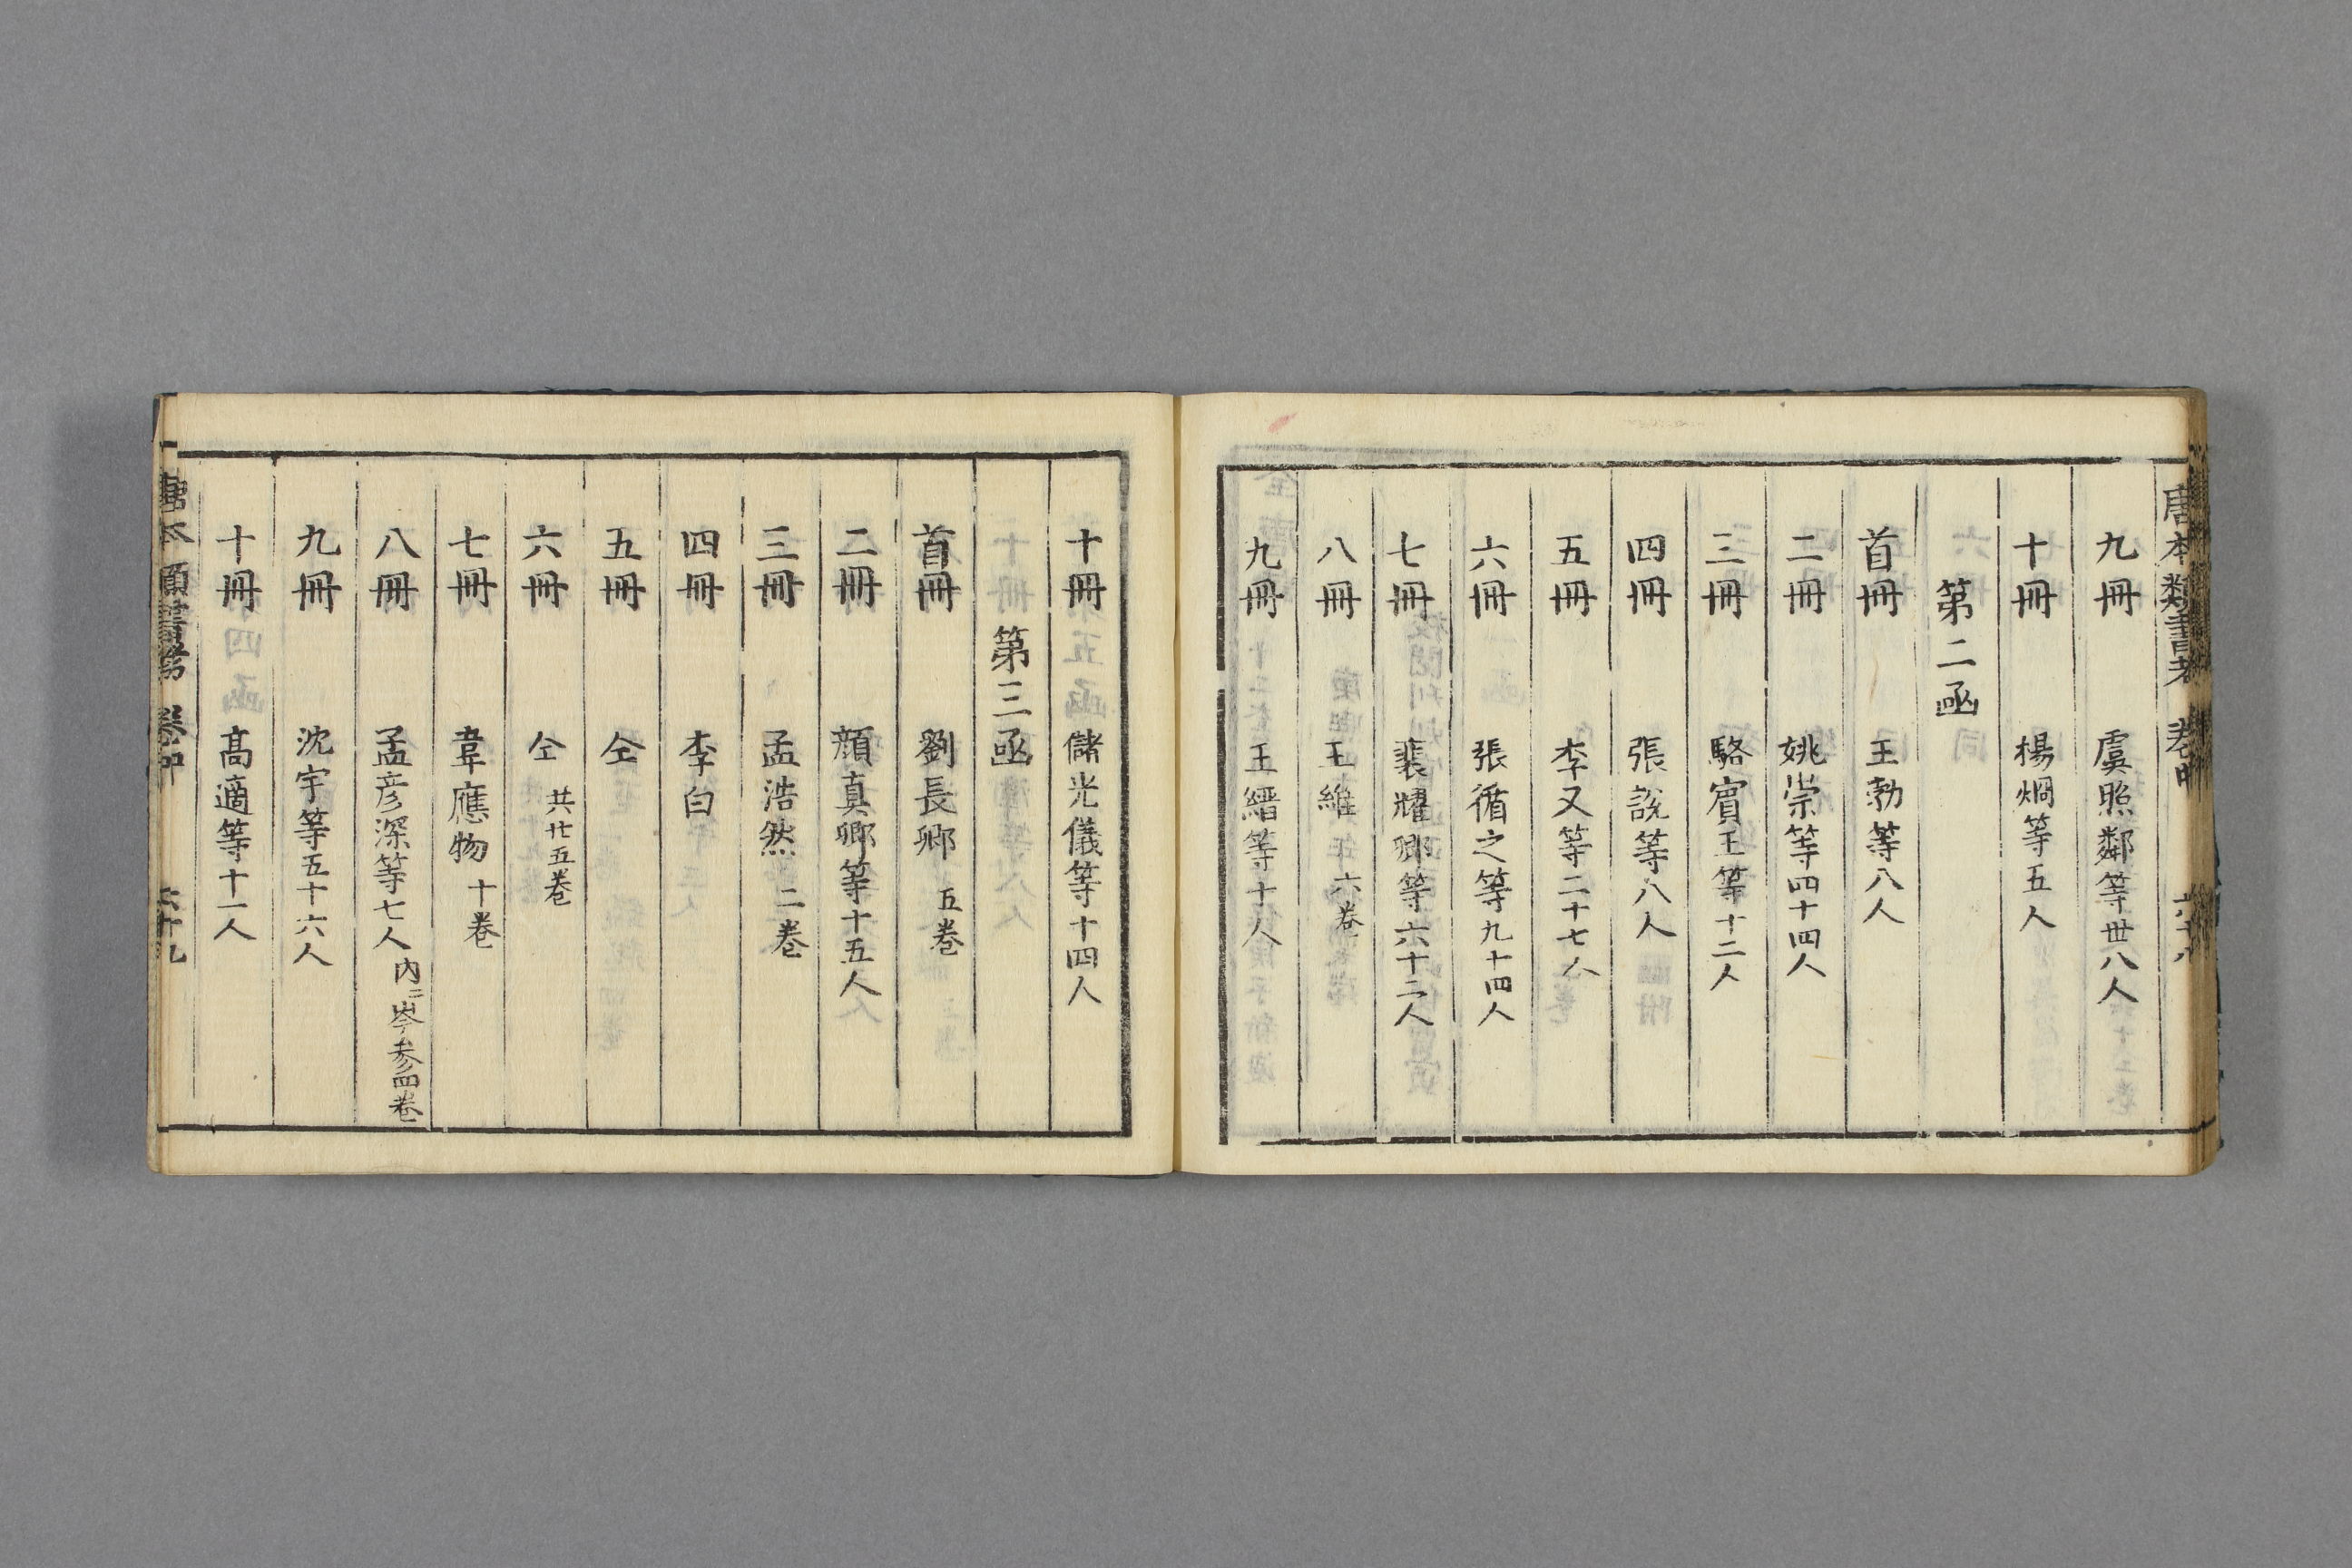 唐本類書考 卷中 六十八
九冊 虞照鄰等卅八人
十冊 楊烱等五人
第二凾
首冊 王勃等八人
二冊 姚崇等四十四人
三冊 駱賓王等十二人
四冊 張說等八人
五冊 李又等二十七人
六冊 張循之等九十四人
七冊 裴耀卿等六十二人
八冊 王維 六卷
九冊 王縉等十人
十冊 儲光儀等十四人
第三凾
首冊 劉長卿 五卷
二冊 顏真卿等十五人
三冊 孟浩然 二卷
四冊 李白
五冊 仝
六冊 仝 共廿五卷
七冊 韋應物 十卷
八冊 孟彦深等七人 內ニ岑参四卷
九冊 沈宇等五十六人
十冊 高適等十一人
唐本類書考 卷中 六十九